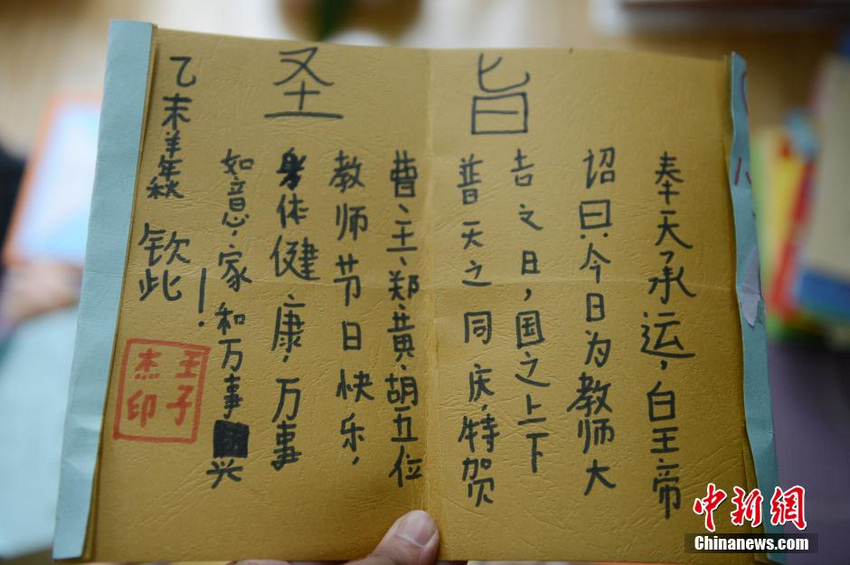 圣旨
奉天承运，皇帝
诏曰：今日为教师大
吉之日，国之上下
普天之同庆，特贺
曹、王、郑、黄、胡五位
教师节日快乐，
身体健康，万事
如意，家和万事兴
！
钦此
乙未羊年秋
王子杰印
中新网
Chinanews.com